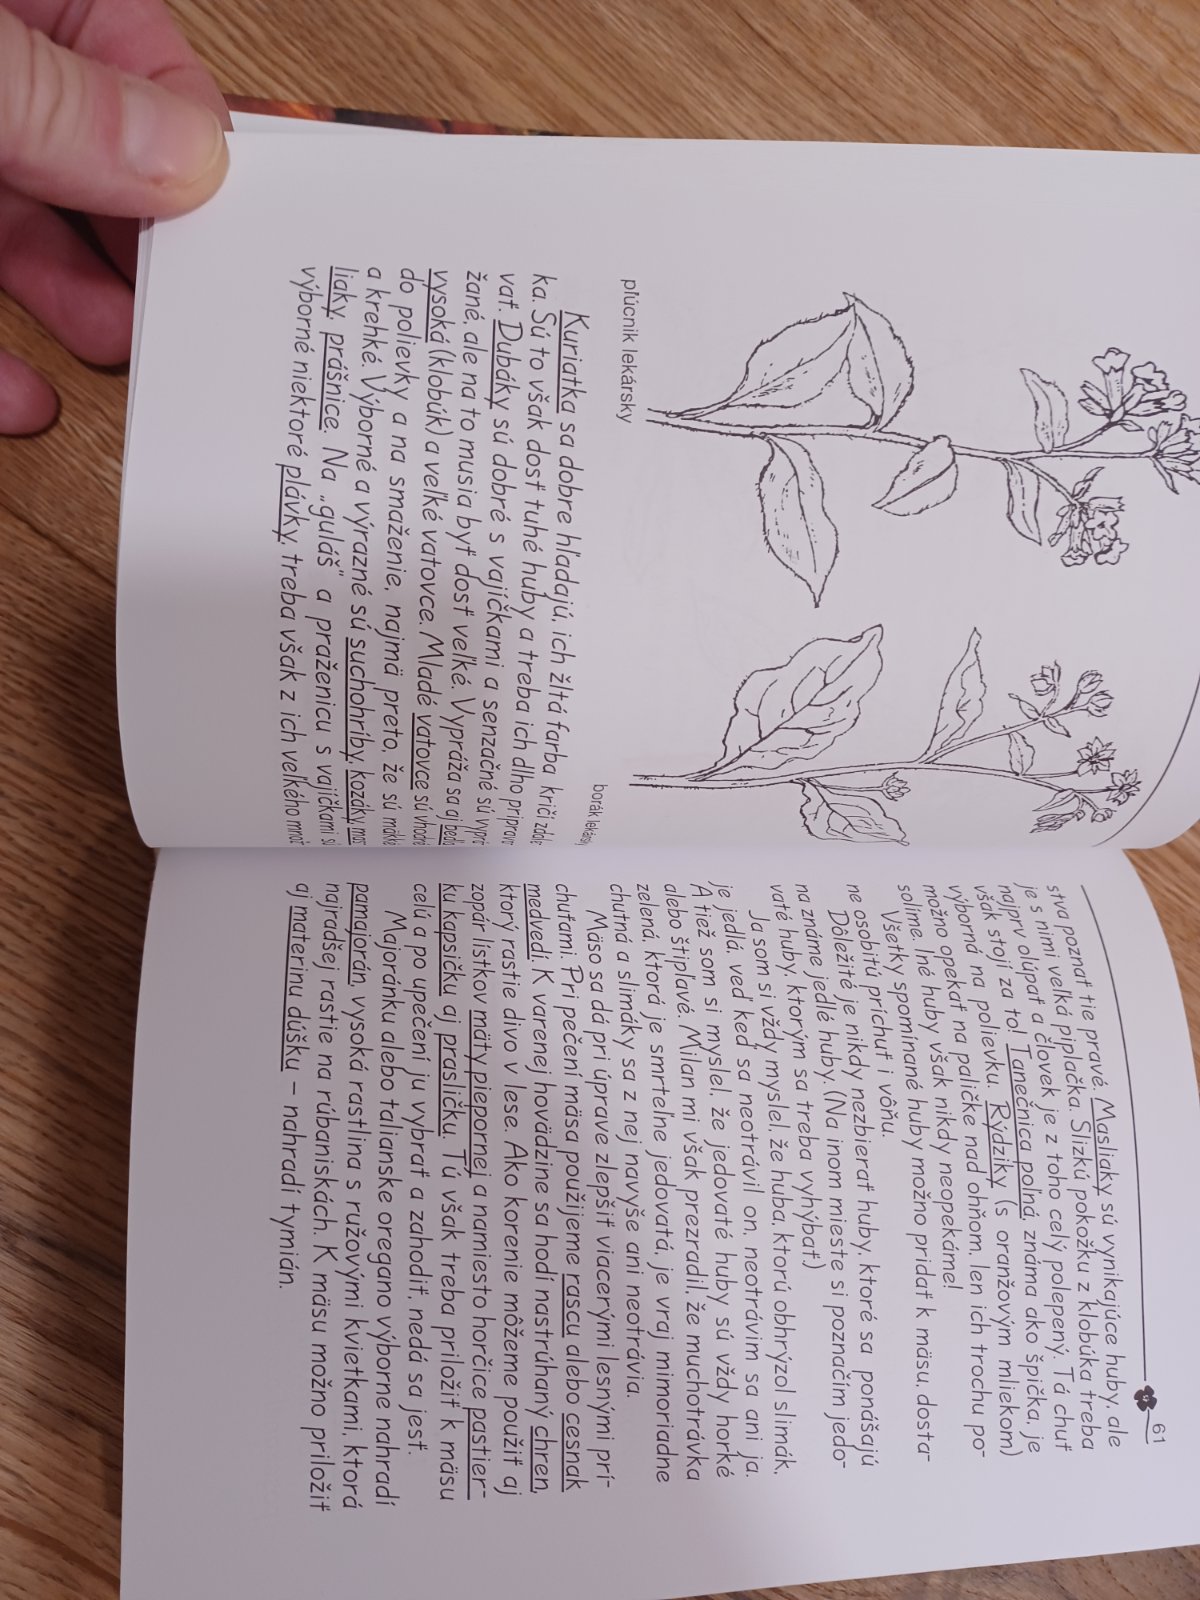 pľúcnik lekársky
borák lekársky
Kuriatka sa dobre hľadajú, ich žltá farba kričí zďale-
ka. Sú to však dosť tuhé huby a treba ich dlho pripravo-
vať. Dubáky sú dobré s vajíčkami a senzačné sú vyprá-
žané, ale na to musia byť dosť veľké. Vypráža sa aj bedľa
vysoká (klobúk) a veľké vatovce. Mladé vatovce sú vhodné
do polievky a na smaženie, najmä preto, že sú mäkké
a krehké. Výborné a výrazné sú suchohríby, kozáky, mas-
liaky, prášnice. Na „guláš“ a praženicu s vajíčkami sú
výborné niektoré plávky, treba však z ich veľkého množ-
61
stva poznať tie pravé. Masliaky sú vynikajúce huby, ale
je s nimi veľká piplačka. Slizkú pokožku z klobúka treba
najprv olúpať a človek je z toho celý polepený. Tá chuť
však stojí za to! Tanečnica poľná, známa ako špička, je
výborná na polievku. Rýdziky (s oranžovým mliekom)
možno opekať na paličke nad ohňom, len ich trochu po-
solíme. Iné huby však nikdy neopekáme!
Všetky spomínané huby možno pridať k mäsu, dosta-
ne osobitú príchuť i vôňu.
Dôležité je nikdy nezbierať huby, ktoré sa ponášajú
na známe jedlé huby. (Na inom mieste si poznačím jedo-
vaté huby, ktorým sa treba vyhýbať.)
Ja som si vždy myslel, že huba, ktorú obhrýzol slimák,
je jedlá, veď keď sa neotrávil on, neotrávim sa ani ja.
A tiež som si myslel, že jedovaté huby sú vždy horké
alebo štipľavé. Milan mi však prezradil, že muchotrávka
zelená, ktorá je smrteľne jedovatá, je vraj mimoriadne
chutná a slimáky sa z nej navyše ani neotrávia.
Mäso sa dá pri úprave zlepšiť viacerými lesnými prí-
chuťami. Pri pečení mäsa použijeme rascu alebo cesnak
medvedí. K varenej hovädzine sa hodí nastrúhaný chren,
ktorý rastie divo v lese. Ako korenie môžeme použiť aj
zopár lístkov mäty piepornej a namiesto horčice pastier-
ku kapsičku aj prasličku. Tú však treba priložiť k mäsu
celú a po upečení ju vybrať a zahodiť, nedá sa jesť.
Majoránku alebo talianske oregano výborne nahradí
pamajorán, vysoká rastlina s ružovými kvietkami, ktorá
najradšej rastie na rúbaniskách. K mäsu možno priložiť
aj materinu dúšku – nahradí tymián.